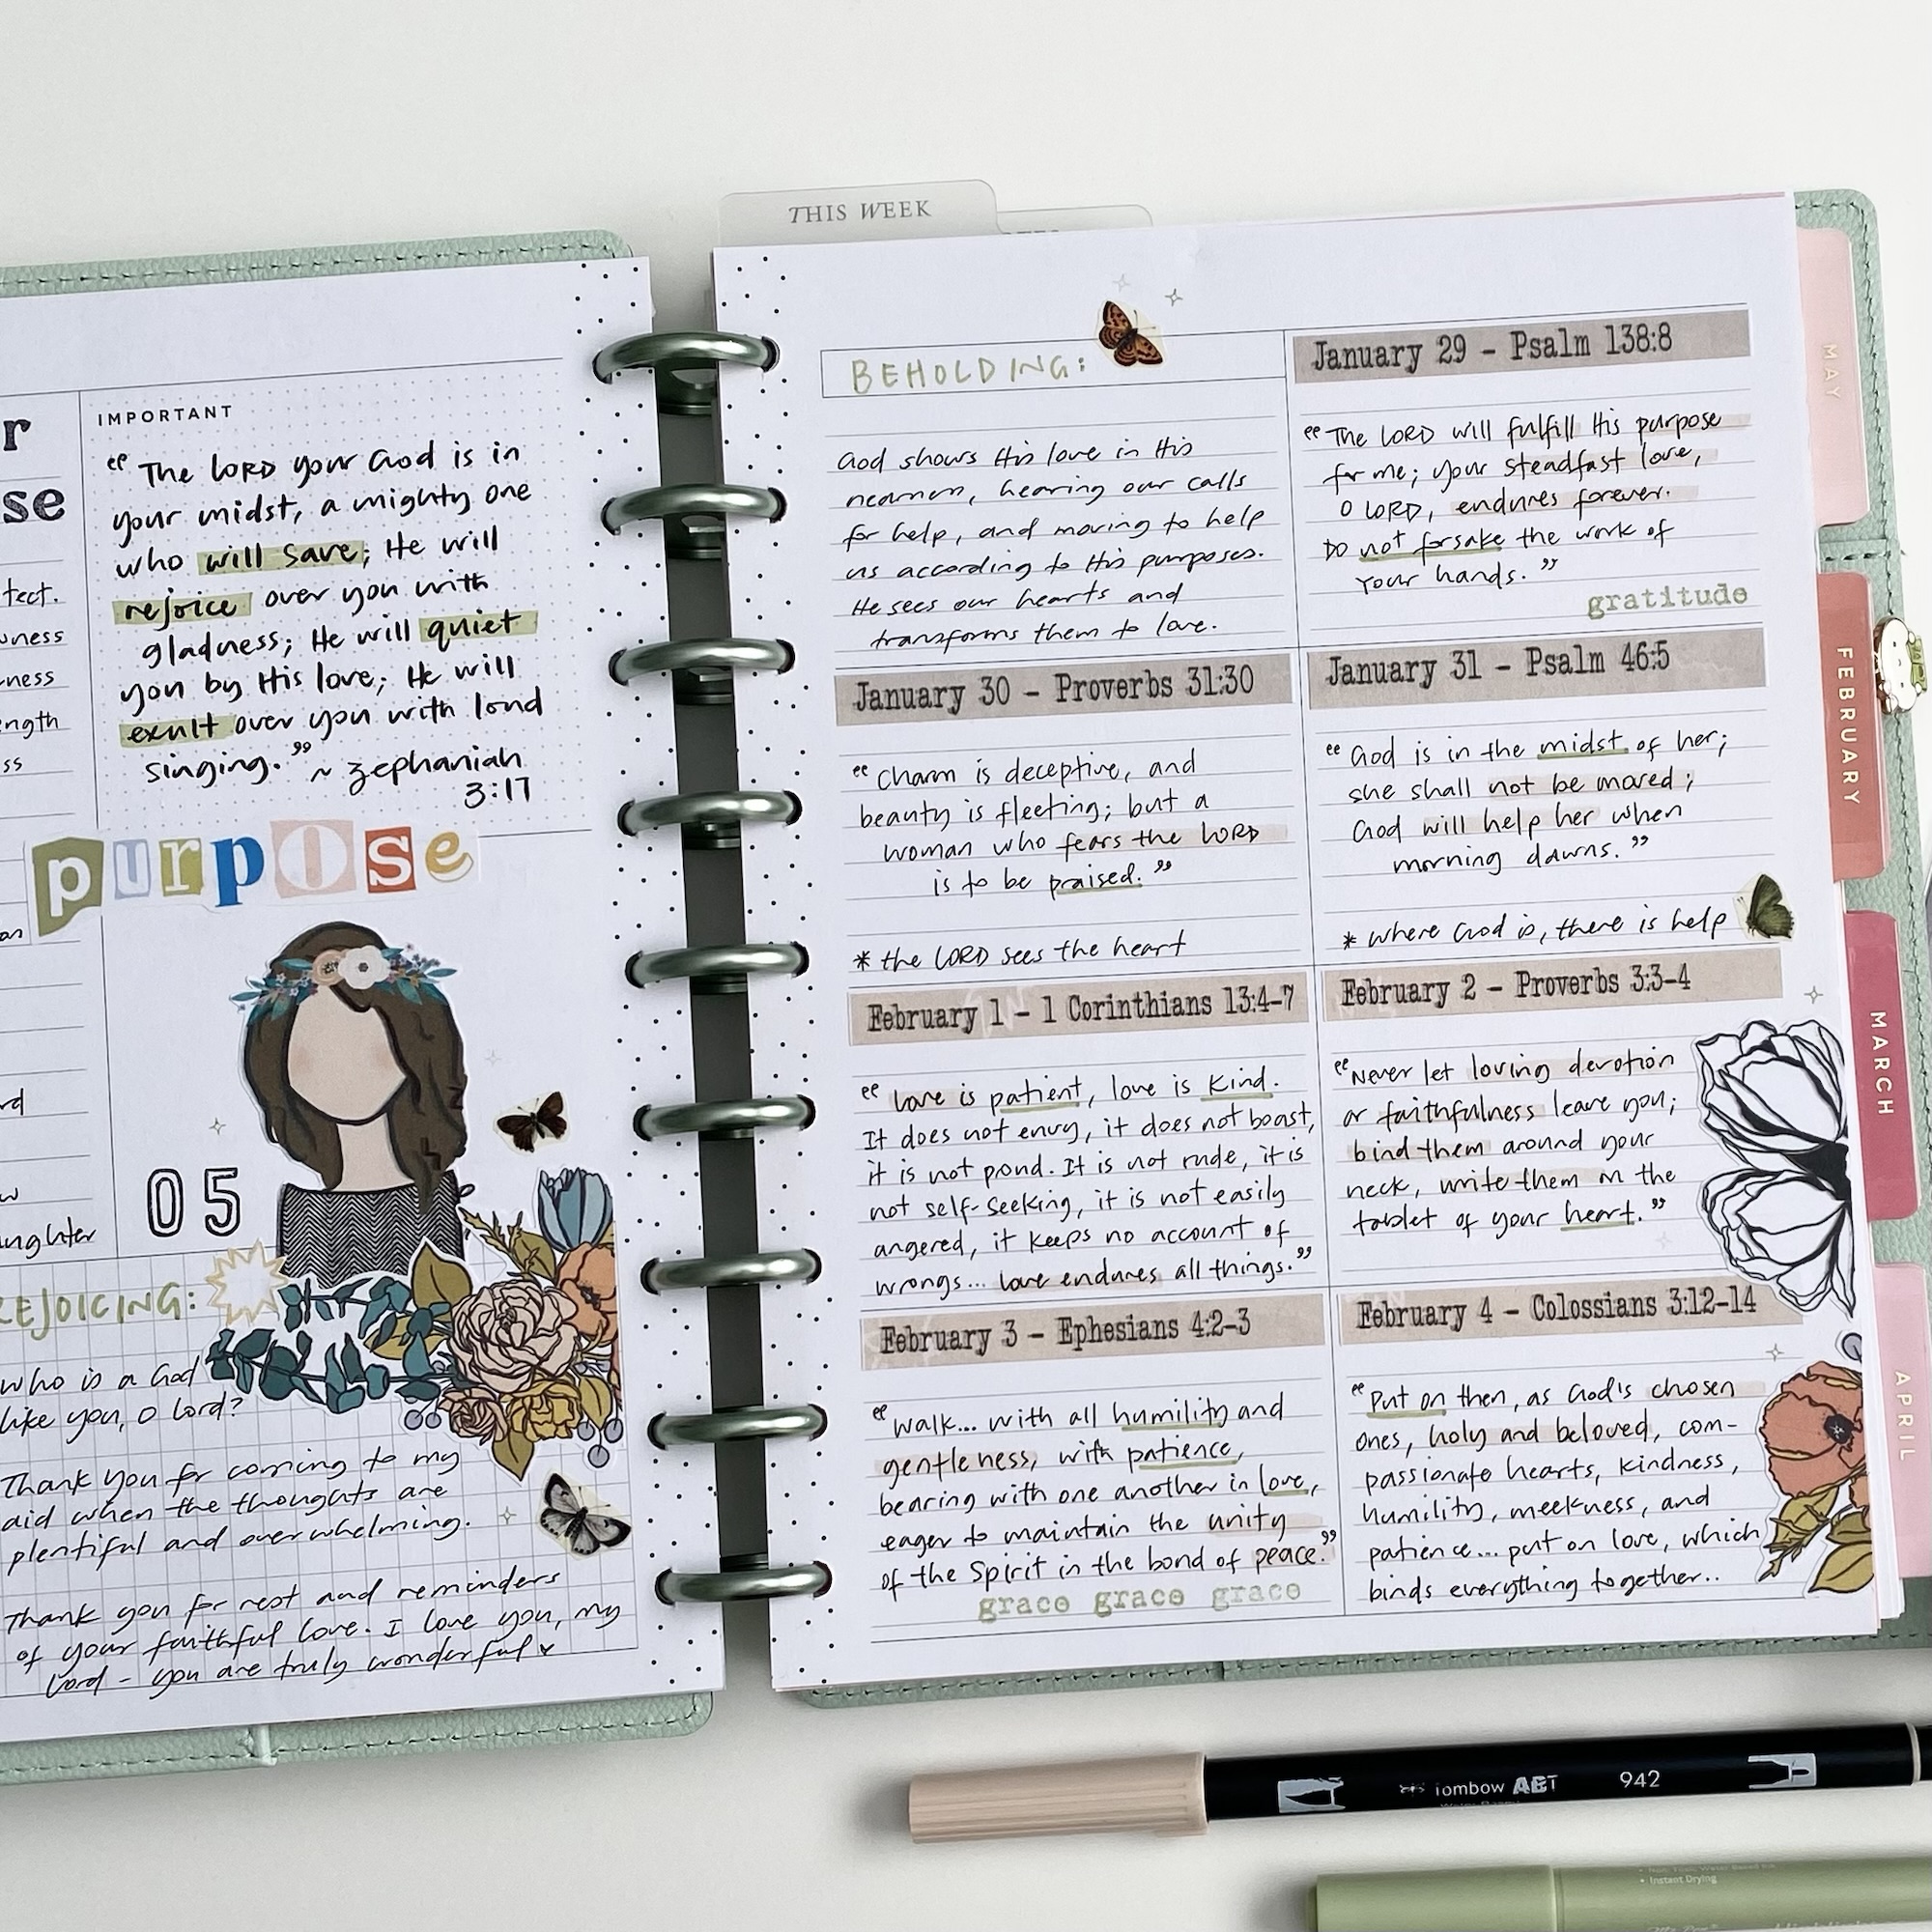 THIS WEEK
r
se
tect.
ness
ngth
ss
rd
w
IMPORTANT
“The LORD your God is in
your midst, a mighty one
who will save; He will
rejoice over you with
gladness; He will quiet
you by His love; He will
exult over you with loud
singing.” ~ Zephaniah
3:17
purpose
05
REJOICING:
Who is a God
like you, O Lord?
Thank you for coming to my
aid when the thoughts are
plentiful and overwhelming.
Thank you for rest and reminders
of your faithful love. I love you, my
Lord - you are truly wonderful
BEHOLDING:
God shows His love in His
nearness, hearing our calls
for help, and moving to help
us according to His purposes.
He sees our hearts and
transforms them to love.
January 29 – Psalm 138:8
“The LORD will fulfill His purpose
for me; your steadfast love,
O LORD, endures forever.
Do not forsake the work of
Your hands.”
gratitude
January 30 – Proverbs 31:30
“Charm is deceptive, and
beauty is fleeting; but a
woman who fears the LORD
is to be praised.”
* the LORD sees the heart
January 31 – Psalm 46:5
“God is in the midst of her;
she shall not be moved;
God will help her when
morning dawns.”
* where God is, there is help
February 1 – 1 Corinthians 13:4–7
“Love is patient, love is kind.
It does not envy, it does not boast,
it is not proud. It is not rude, it is
not self-seeking, it is not easily
angered, it keeps no account of
wrongs... love endures all things.”
February 2 – Proverbs 3:3–4
“Never let loving devotion
or faithfulness leave you;
bind them around your
neck, write them on the
tablet of your heart.”
February 3 – Ephesians 4:2–3
“Walk... with all humility and
gentleness, with patience,
bearing with one another in love,
eager to maintain the unity
of the Spirit in the bond of peace.”
grace grace grace
February 4 – Colossians 3:12–14
“Put on then, as God's chosen
ones, holy and beloved, com-
passionate hearts, kindness,
humility, meekness, and
patience... put on love, which
binds everything together..
MAY
FEBRUARY
MARCH
APRIL
Tombow ABT 942
• Instant Drying